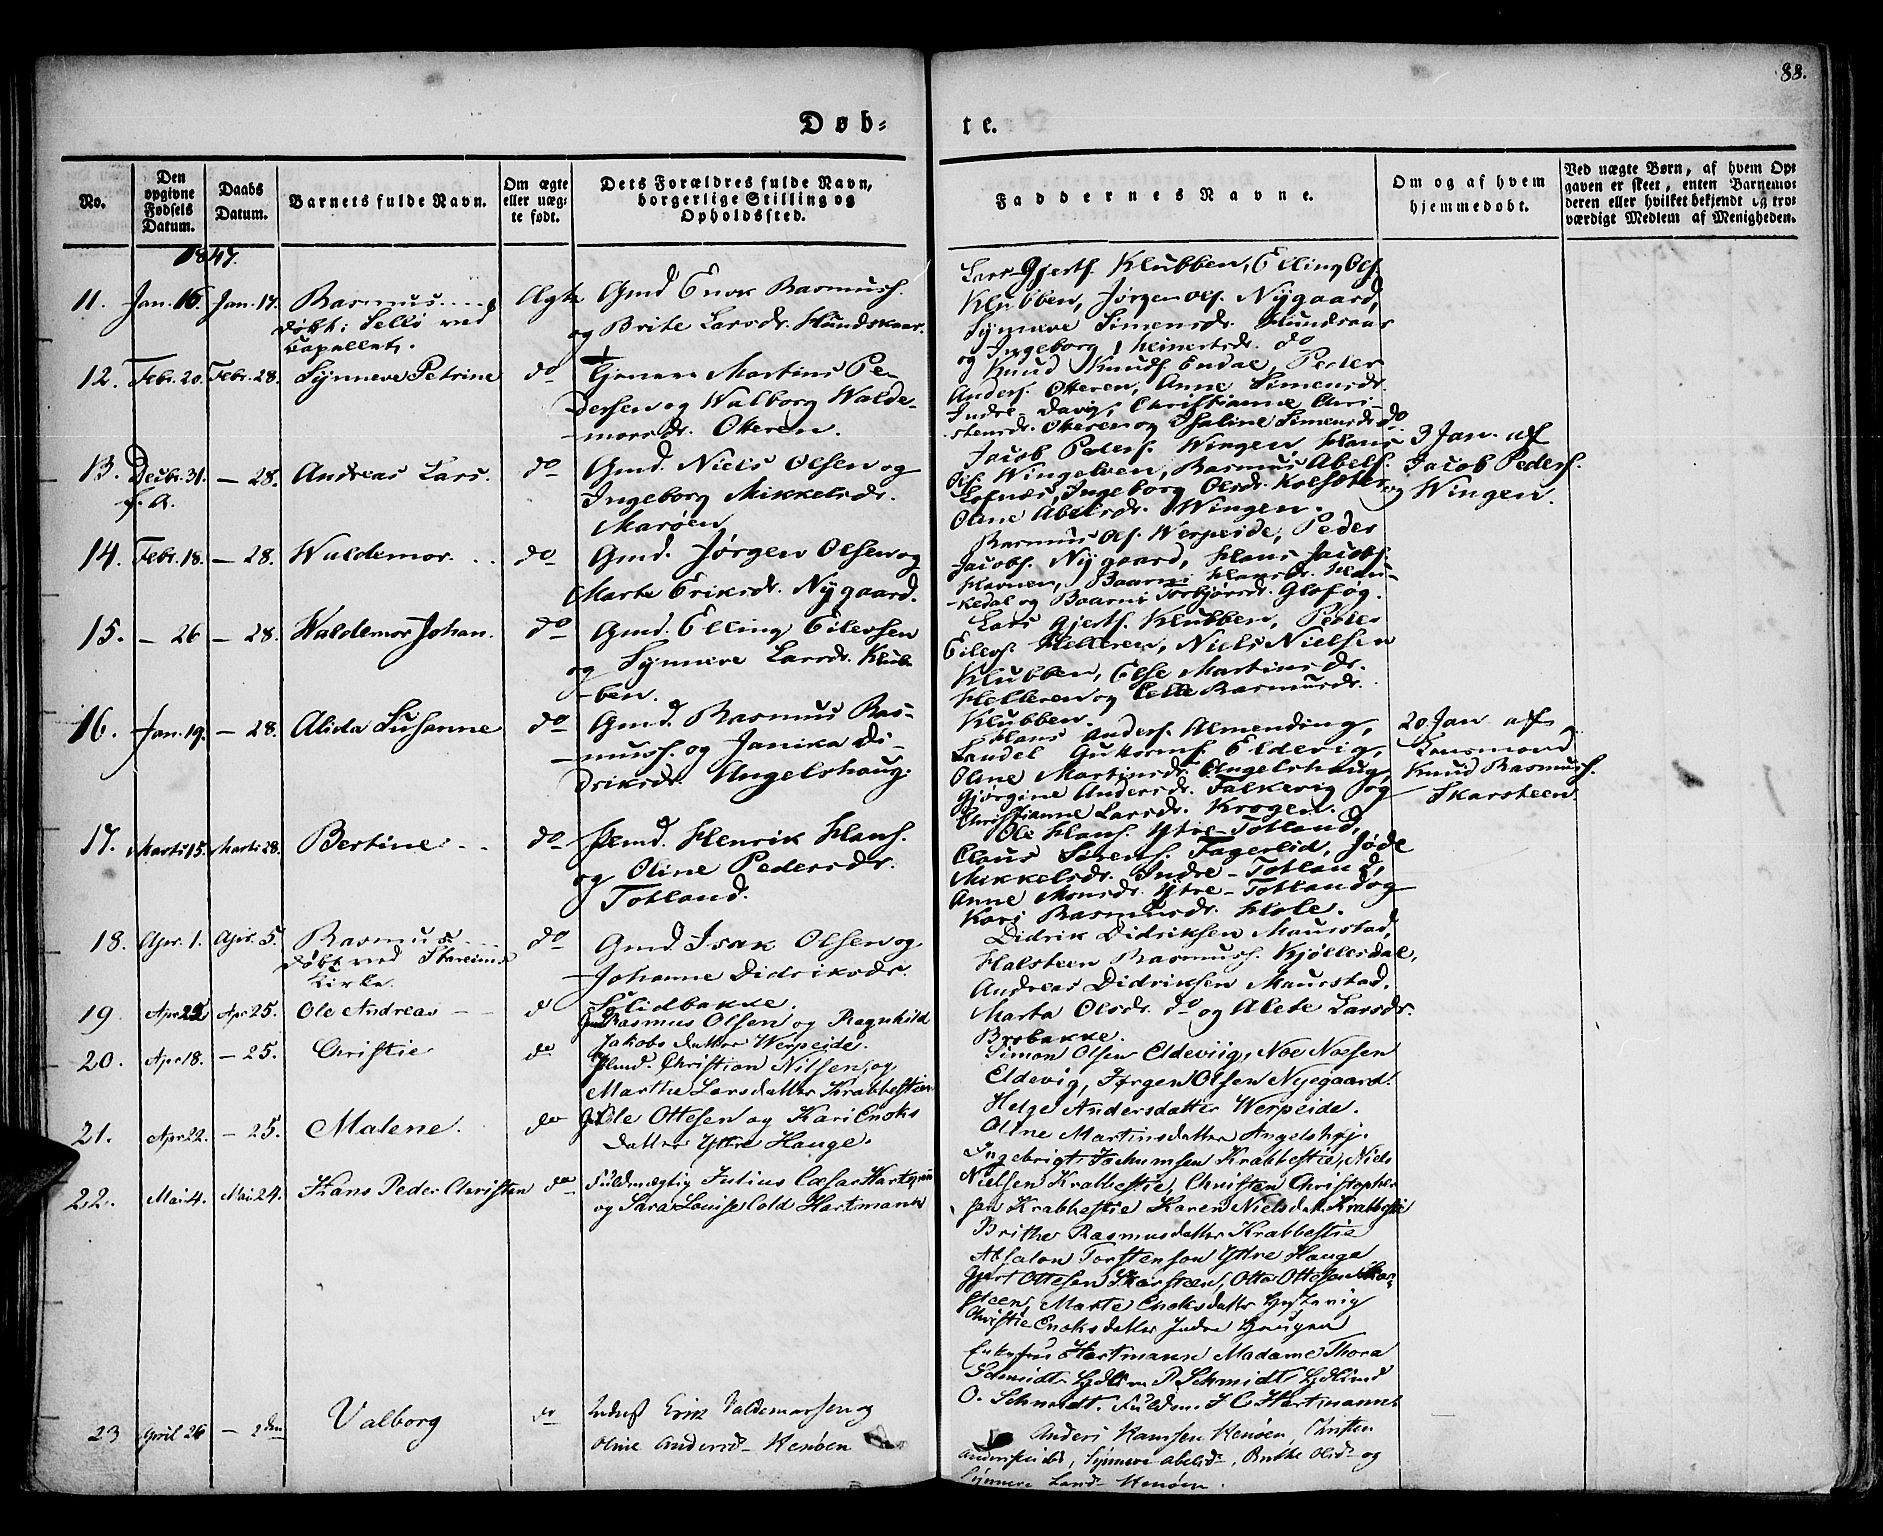 88.
Døb-
te.
No.
Den opgivne Fødsels Datum.
Daabs Datum.
Barnets fulde Navn.
Om ægte eller uægte født.
Dets Forældres fulde Navn, borgerlige Stilling og Opholdssted.
Faddernes Navne.
Om og af hvem hjemmedøbt.
Ved uægte Børn, af hvem Opgaven er skeet, enten Barnemoderen eller hvilket bekjendt og troværdigt Medlem af Menigheden.
1847.
11. Jan. 16 Jan. 17. Rasmus
døbt i Selje ved
Capellet.
Ægte
Gmd Enok Rasmuss.
og Brite Larsdr. Hundskaar.
Lars Gjerts. Klubben, Elling Ols.
Klubben, Jørgen Ols. Nygaard,
Synneve Simensdr. Hundskaar
og Ingeborg Reinertsdr. do
12. Febr. 20. Febr. 28. Synneve Petrine
do
Martins Pe-
dersen og Walborg Walde-
morsdr. Otteren.
Knud Knuds. Endal, Peder
Anders. Otteren, Anne Simensdr.
Indre- Davig, Christianne Chri-
stensdr. Otteren og Isaline Simensdr. do
13. Decbr. 31. f. A. - 28. Andreas Lars.
do
Gmd. Niels Olsen og
Ingeborg Mikkelsdr.
Marøen
Jacob Peders. Wingen, Hans
Ols. Wingelven, Rasmus Abels.
Lofnæs, Ingeborg Olsdr. Kolsæter og
Oline Abelsdr. Wingen.
3 Jan. af
Jacob Peders.
Wingen.
14. Febr. 18. - 28. Waldemor.
do
Gmd. Jørgen Olsen og
Marte Eriksdr. Nygaard.
Rasmus Ols. Werpeide, Peder
Jacobs. Nygaard, Hans Jacobs.
Havnen, Baarni Hansdr. Hau-
kedal og Baarni Torbjørsdr. Glofog.
15. - 26 - 28. Waldemor Johan.
do
Gmd. Elling Eilersen
og Synneve Larsdr. Klub-
ben.
Lars Gjerts. Klubben, Peder
Eilers. Helleren, Niels Nielsen
Klubben, Else Martinsdr.
Helleren og Pelle Rasmusdr.
Klubben.
16. Jan. 19. - 28. Alida Susanne
do
Gmd. Rasmus Ras-
muss. og Janika Di-
driksdr. Angelshaug.
Hans Anders. Almending,
Sandel Guttorms. Eldevig,
Oline Martinsdr. Angelshaug,
Gjørgine Andersdr. Falkevig og
Christianne Larsdr. Krogen.
20 Jan af
Lensmand
Knud Rasmuss.
Skarsteen
17. Marti 15. Marti 28. Bertine
do
Pmd. Henrik Hans.
og Oline Pedersdr.
Totland.
Ole Hans. Ytre-Totland,
Claus Sørens. Fagerlid, Jøde
Mikkelsdr. Indre-Totland,
Anne Monsdr. Ytre-Totland og
Kari Rasmusdr. Hole.
18. Apr. 1. Apr. 5. Rasmus
døbt ved Stareims
Kirke.
do
Gmd Isak Olsen og
Johanne Didriksdr.
Slidbakke.
Didrik Didriksen Maurstad,
Halsteen Rasmuss. Kjøllesdal,
Andreas Didriksen Maurstad,
Marta Olsdr. do og Alete Larsdr.
Brobakke.
19. Apr 22 Apr 25. Ole Andreas
do
Gmd Rasmus Olsen og Ragnhild
Jakobsdatter Werpeide.
Simon Olsen Eldeviig, Noe Noesen
Eldevig, Jørgen Olsen Nyegaard.
Helge Andersdatter Werpeide.
Oline Martinsdatter Angelshøj.
20. Apr 18. - 25. Christie
do
Pmd. Christian Nilsen og
Marthe Larsdatter Krabbestien
Ingebrigt Jochumsen Krabbestie, Niels
Nielsen Krabbestie, Christen Christopher
sen Krabbestie Karen Nielsdatt. Krabbestie
Brithe Rasmusdatter Krabbestie
21. Apr 22. - 25. Malene.
do
Ole Ottesen og Kari Enoks
datter Yttre Hauge.
Absalon Torstensøn Ydtre Hauge
Gjert Ottesen Skarsteen, Otto Ottesen Skar-
steen, Marte Enoksdatter
Christie Enoksdatter Indre Haugen
22. Mai 4. Mai 24. Hans Peder Christen
do
Fuldmægtig Julius Cæsar Hartmann
og Sara Louise Cold Hartmann
Enkefru Hartmann Madame Thora
Schmidt, P Schmidt,
O. Schmidt. Fuldm. J C Hartmann
23 April 26 - 2den Valborg
do
Indst Erik Valdemarsen og
Oline Andersd- Henøen
Anders Hansen Henøen, Christen
Synneve Abelsd-, Brithe Olsd- og
Synneve Henøen.